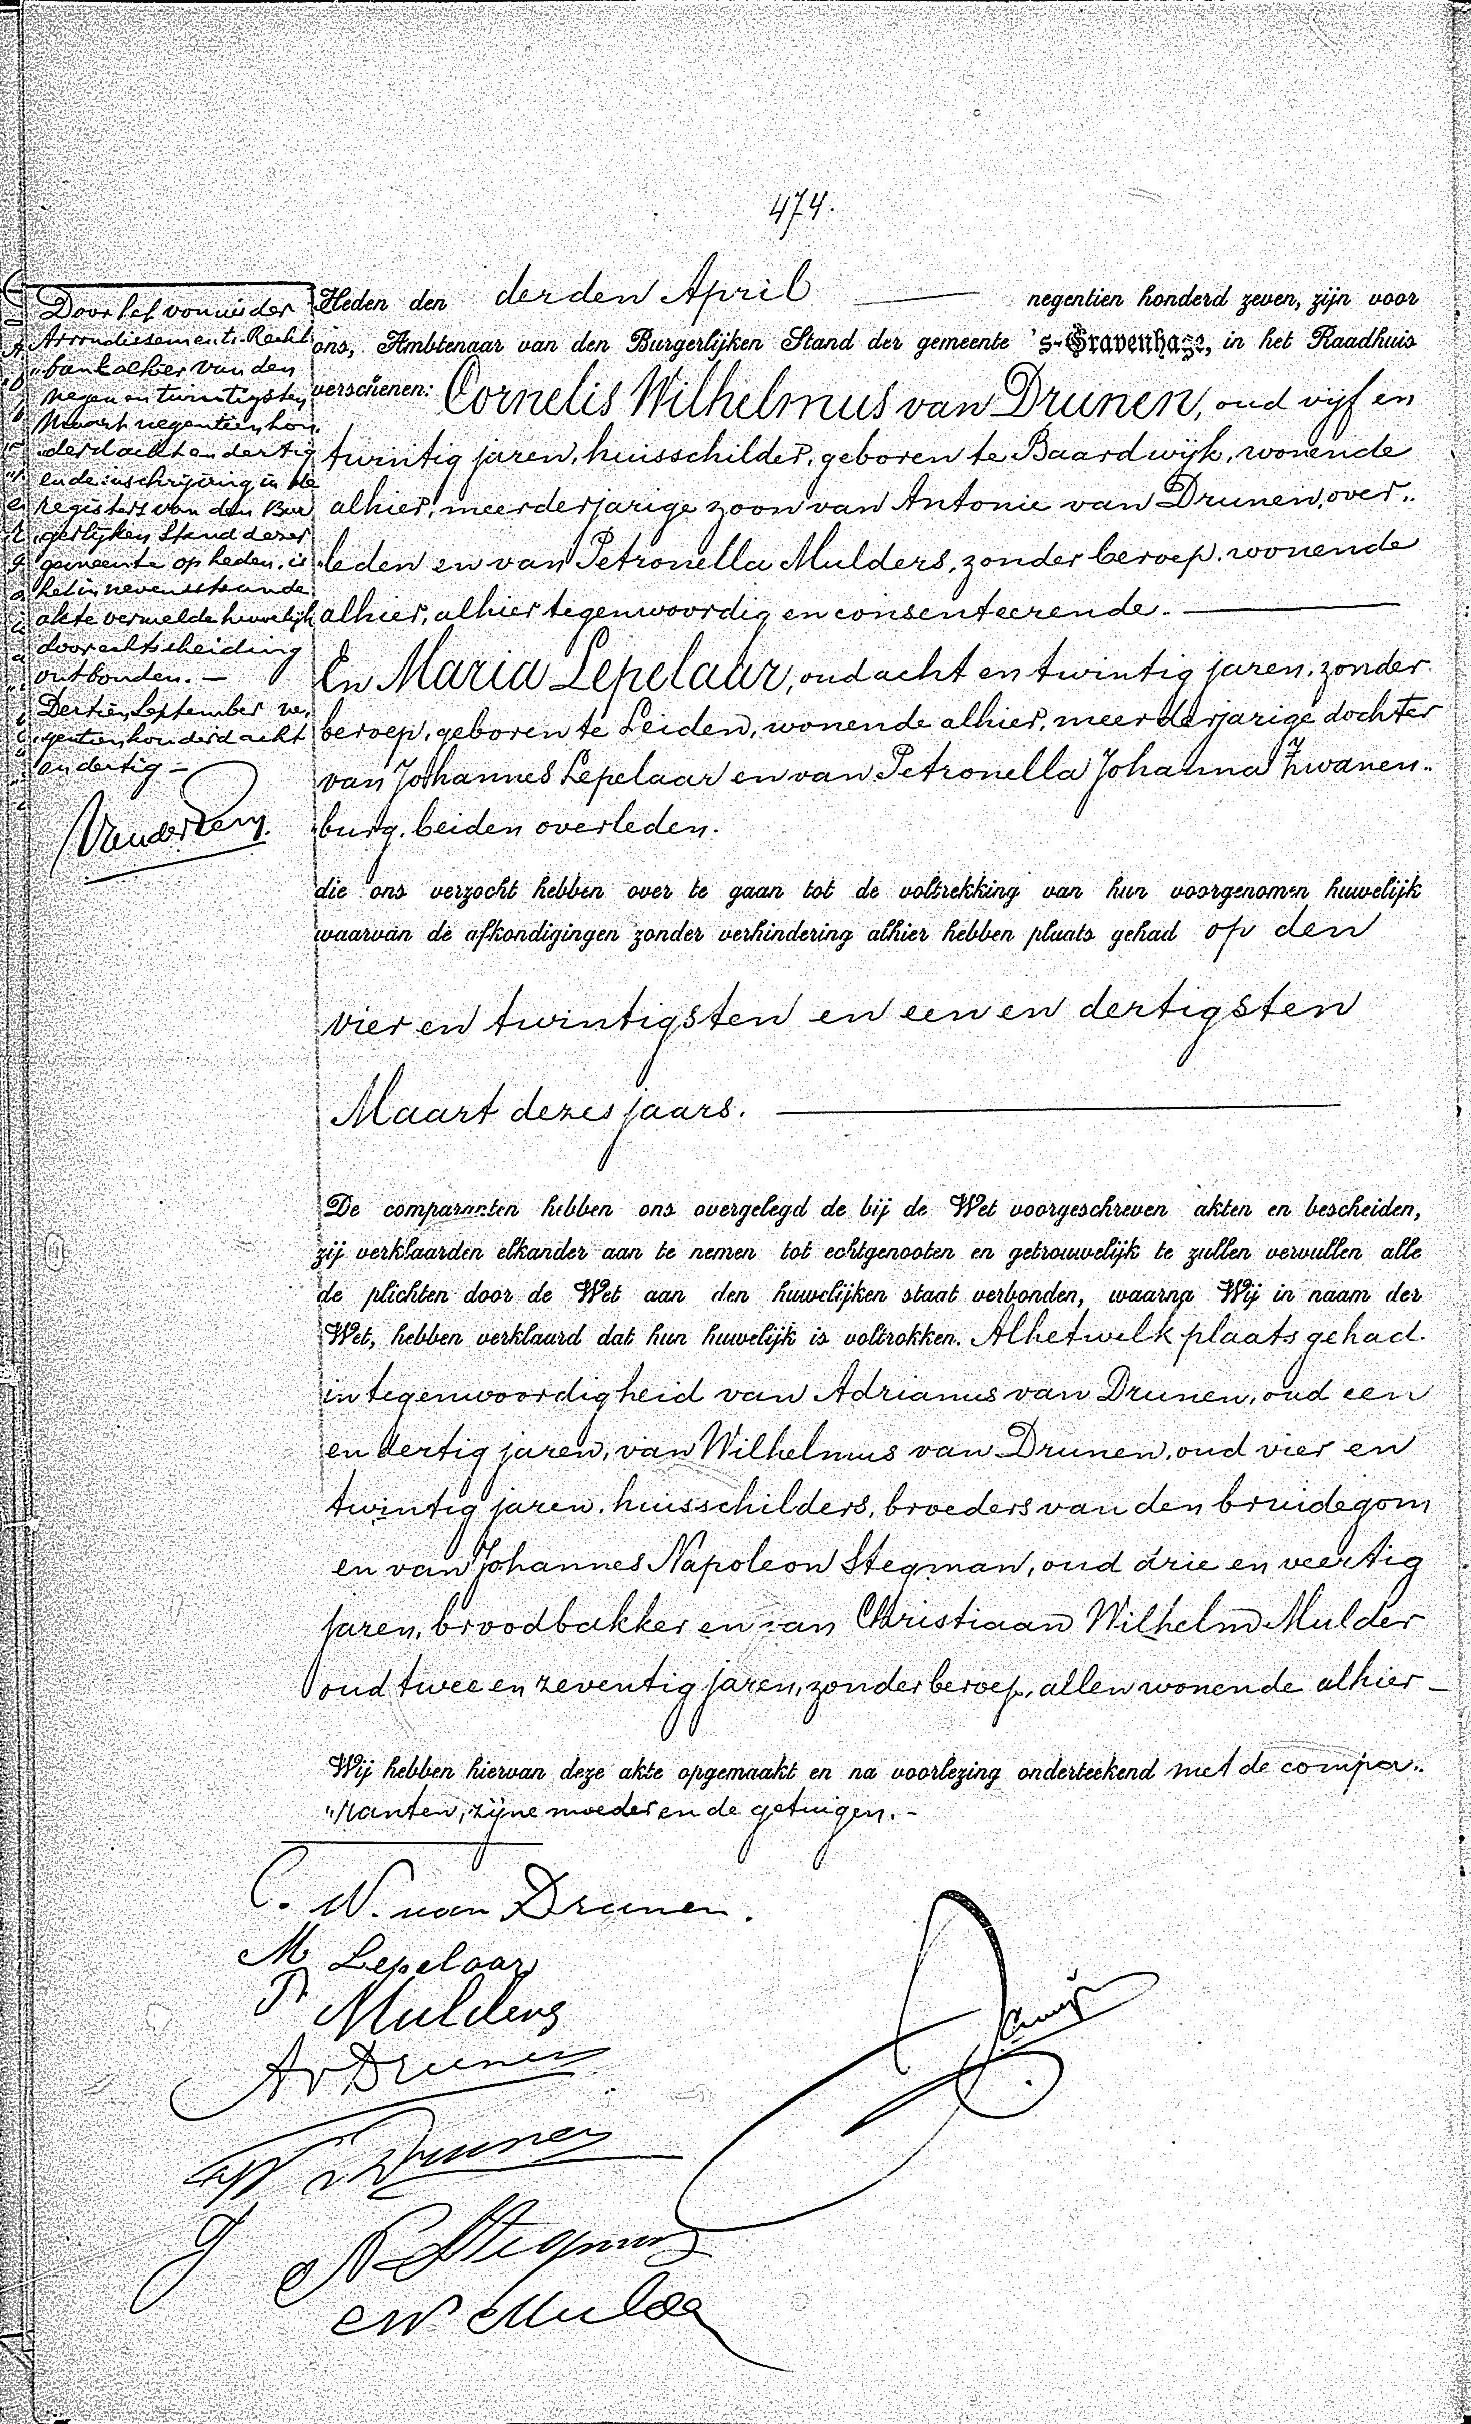 474.
Heden den derden April negentien honderd zeven, zijn voor
ons, Ambtenaar van den Burgerlijken Stand der gemeente 's-Gravenhage, in het Raadhuis
verschenen: Cornelis Wilhelmus van Drunen, oud vijf en
twintig jaren, huisschilder, geboren te Baardwijk, wonende
alhier, meerderjarige zoon van Antonie van Drunen, over..
leden en van Petronella Mulders, zonder beroep, wonende
alhier, alhier tegenwoordig en consenteerende.
En Maria Lepelaar, oud acht en twintig jaren, zonder
beroep, geboren te Leiden, wonende alhier, meerderjarige dochter
van Johannes Lepelaar en van Petronella Johanna Zwanen..
burg, beiden overleden.
die ons verzocht hebben over te gaan tot de voltrekking van hun voorgenomen huwelijk
waarvan de afkondigingen zonder verhindering alhier hebben plaats gehad op den
vier en twintigsten en een en dertigsten
Maart dezes jaars.
De comparanten hebben ons overgelegd de bij de Wet voorgeschreven akten en bescheiden,
zij verklaarden elkander aan te nemen tot echtgenooten en getrouwelijk te zullen vervullen alle
de plichten door de Wet aan den huwelijken staat verbonden, waarna Wij in naam der
Wet, hebben verklaard dat hun huwelijk is voltrokken. Alhetwelk plaats gehad
in tegenwoordigheid van Adrianus van Drunen, oud een
en dertig jaren, van Wilhelmus van Drunen, oud vier en
twintig jaren, huisschilders, broeders van den bruidegom
en van Johannes Napoleon Stegman, oud drie en veertig
jaren, broodbakker en van Christiaan Wilhelm Mulder
oud twee en zeventig jaren, zonder beroep, allen wonende alhier
Wij hebben hiervan deze akte opgemaakt en na voorlezing onderteekend met de compa..
"ranten, zijne moeder en de getuigen.
Door het vonnis der
Arrondissements-Recht
"bank alhier van den
negen en twintigsten
Maart negentien hon.
.derd acht en dertig
en de inschrijving in de
registers van den Bur
"gerlijken Stand dezer
gemeente op heden, is
het in nevenstaande
akte vermelde huwelijk
door echtscheiding
ontbonden.
Dertien September ne.
"gentien honderd acht
en dertig
C. W. van Drunen.
M Lepelaar
P Mulders
A v Drunen
W v Drunen
J N Stegman
C W Mulder